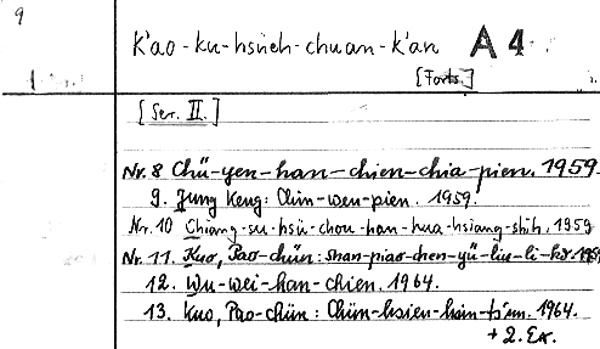 9
K'ao-ku-hsüeh-chuan-k'an A 4
[Forts.]
[Ser. II.]
Nr. 8 Chü-yen-han-chien-chia-pien. 1959.
9. Jung Keng: Chin-wen-pien. 1959.
Nr. 10 Chiang-su-hsü-chou-han-hua-hsiang-shih. 1959
Nr. 11. Kuo, Pao-chün: Shan-piao-chen-yü-liu-li-ko. 1959
12. Wu-wei-han-chien. 1964.
13. Kuo, Pao-chün: Chün-hsien-hsin-ts'un. 1964.
+ 2. Ex.